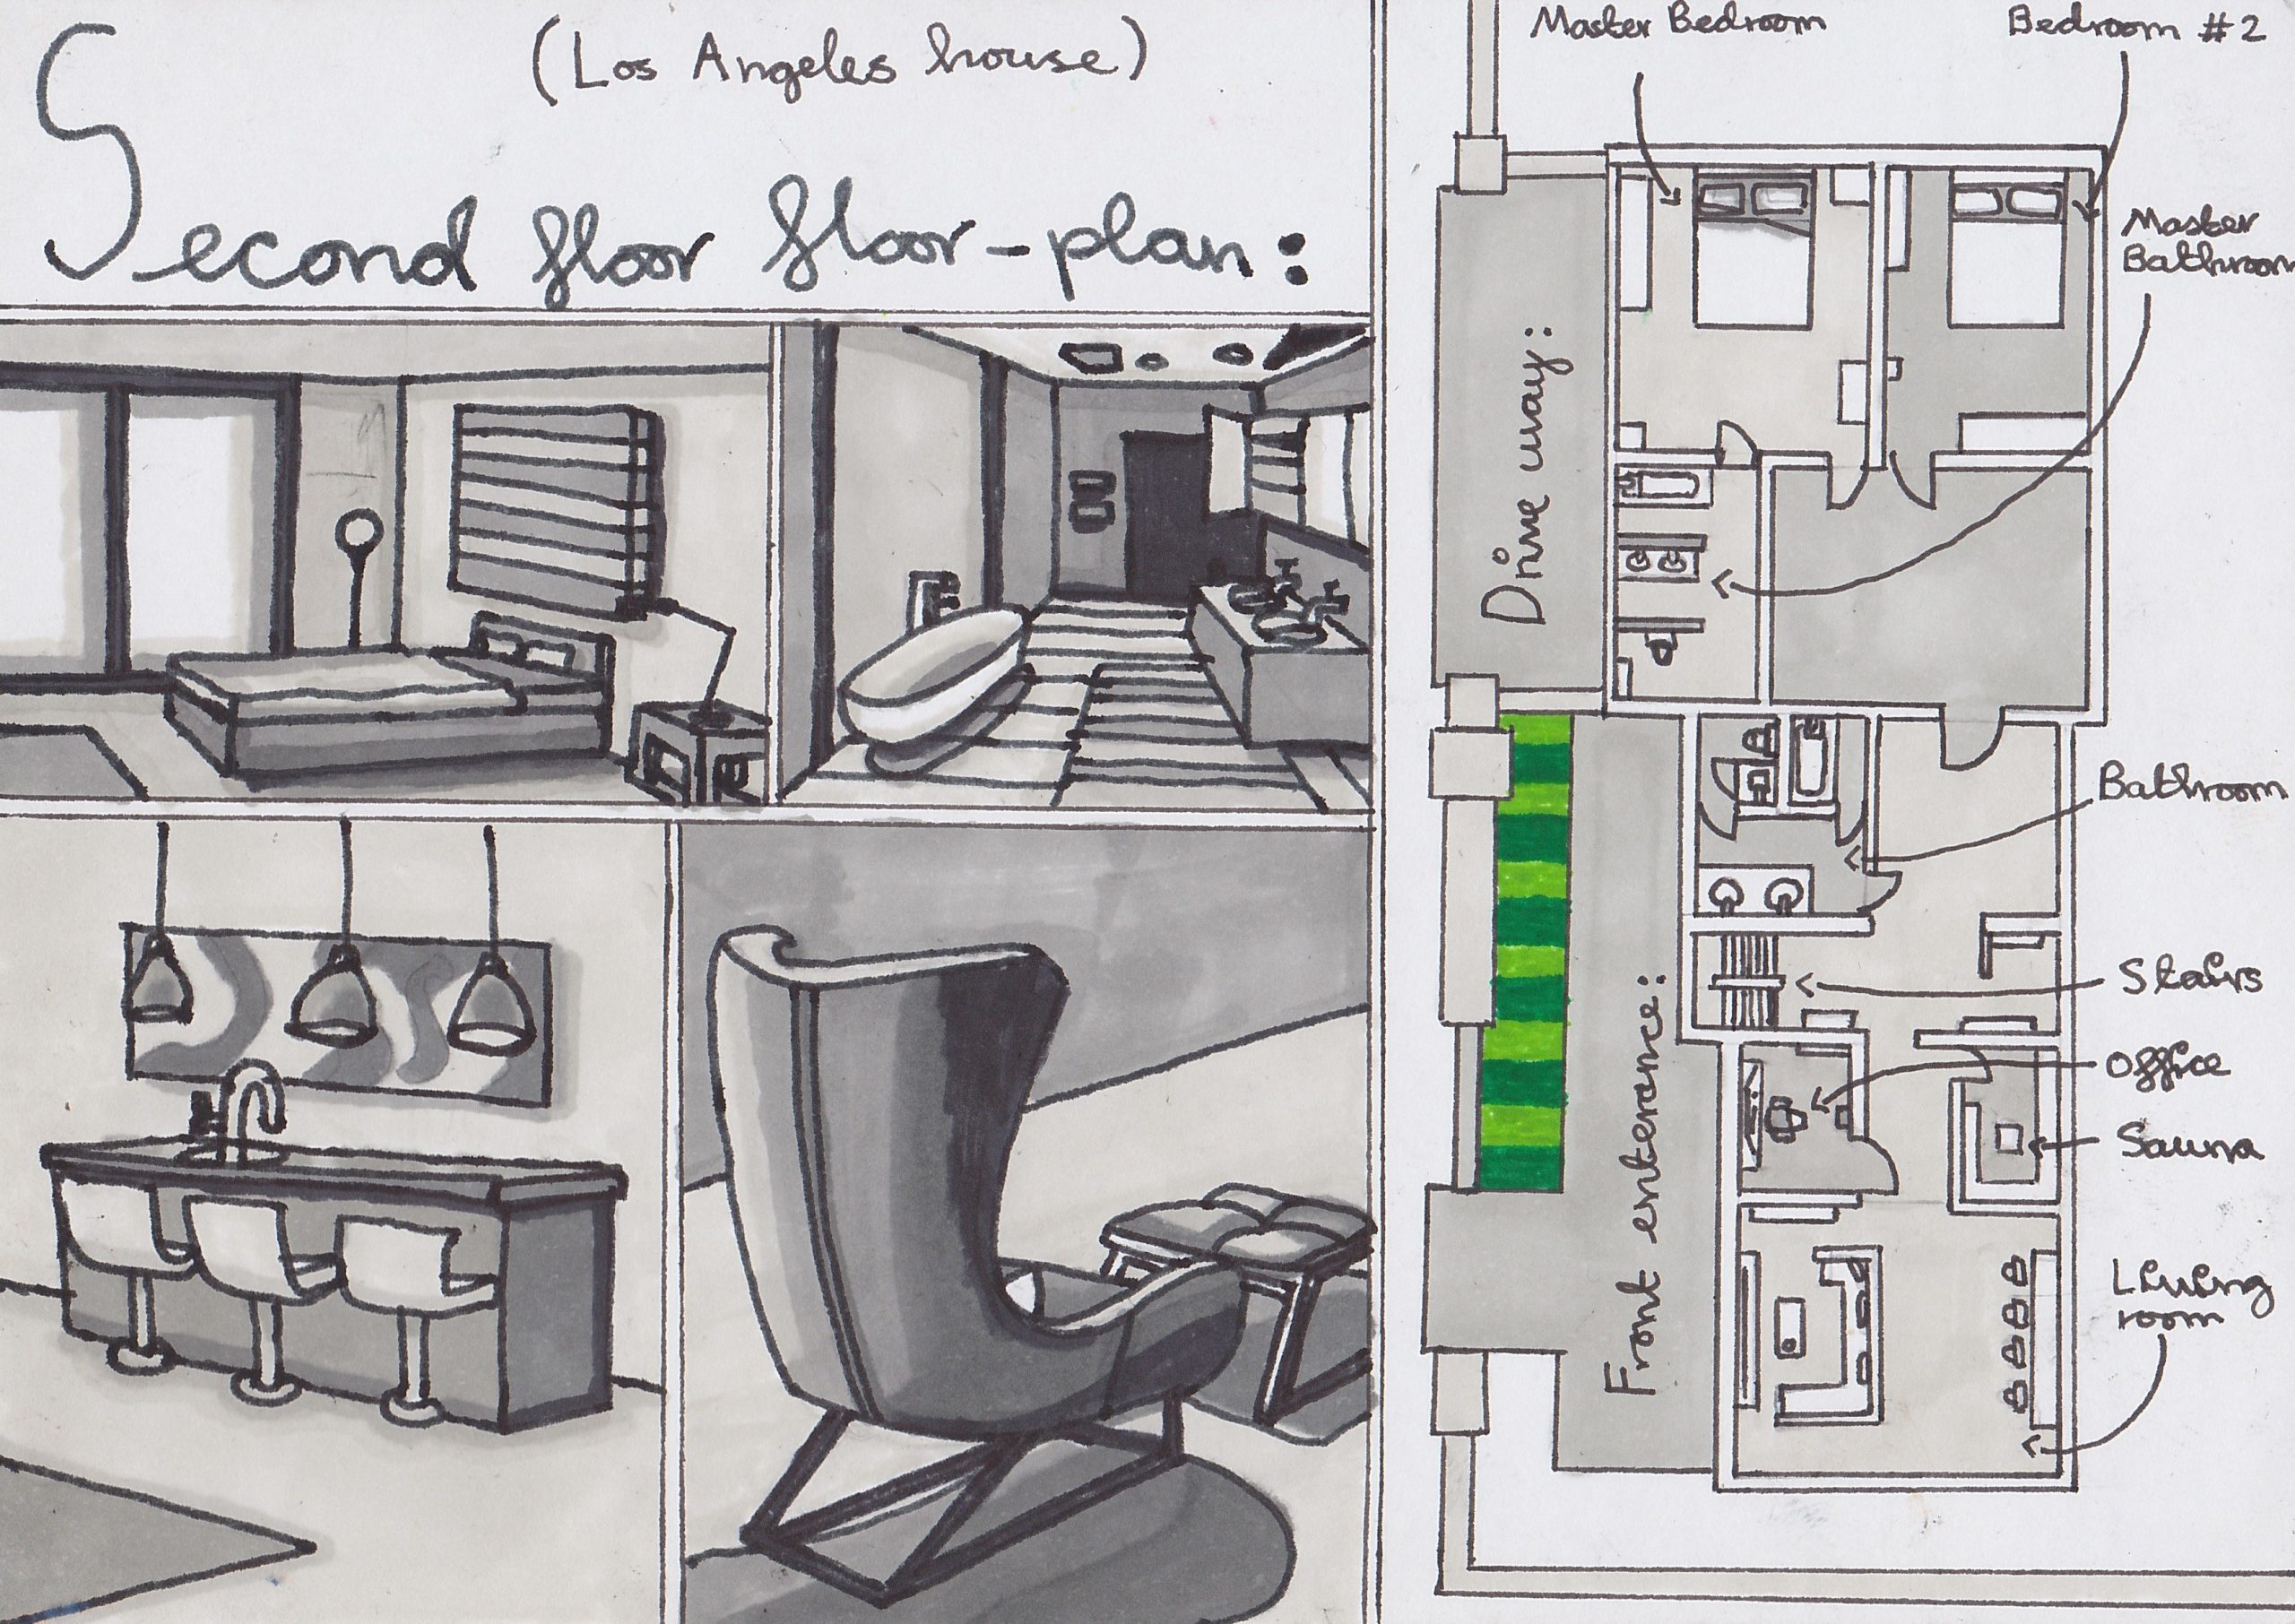 (Los Angeles house)
Second floor floor-plan:
Master Bedroom
Bedroom #2
Master
Bathroom
Drive way:
Bathroom
Stairs
Office
Sauna
Front enterance:
Living
room